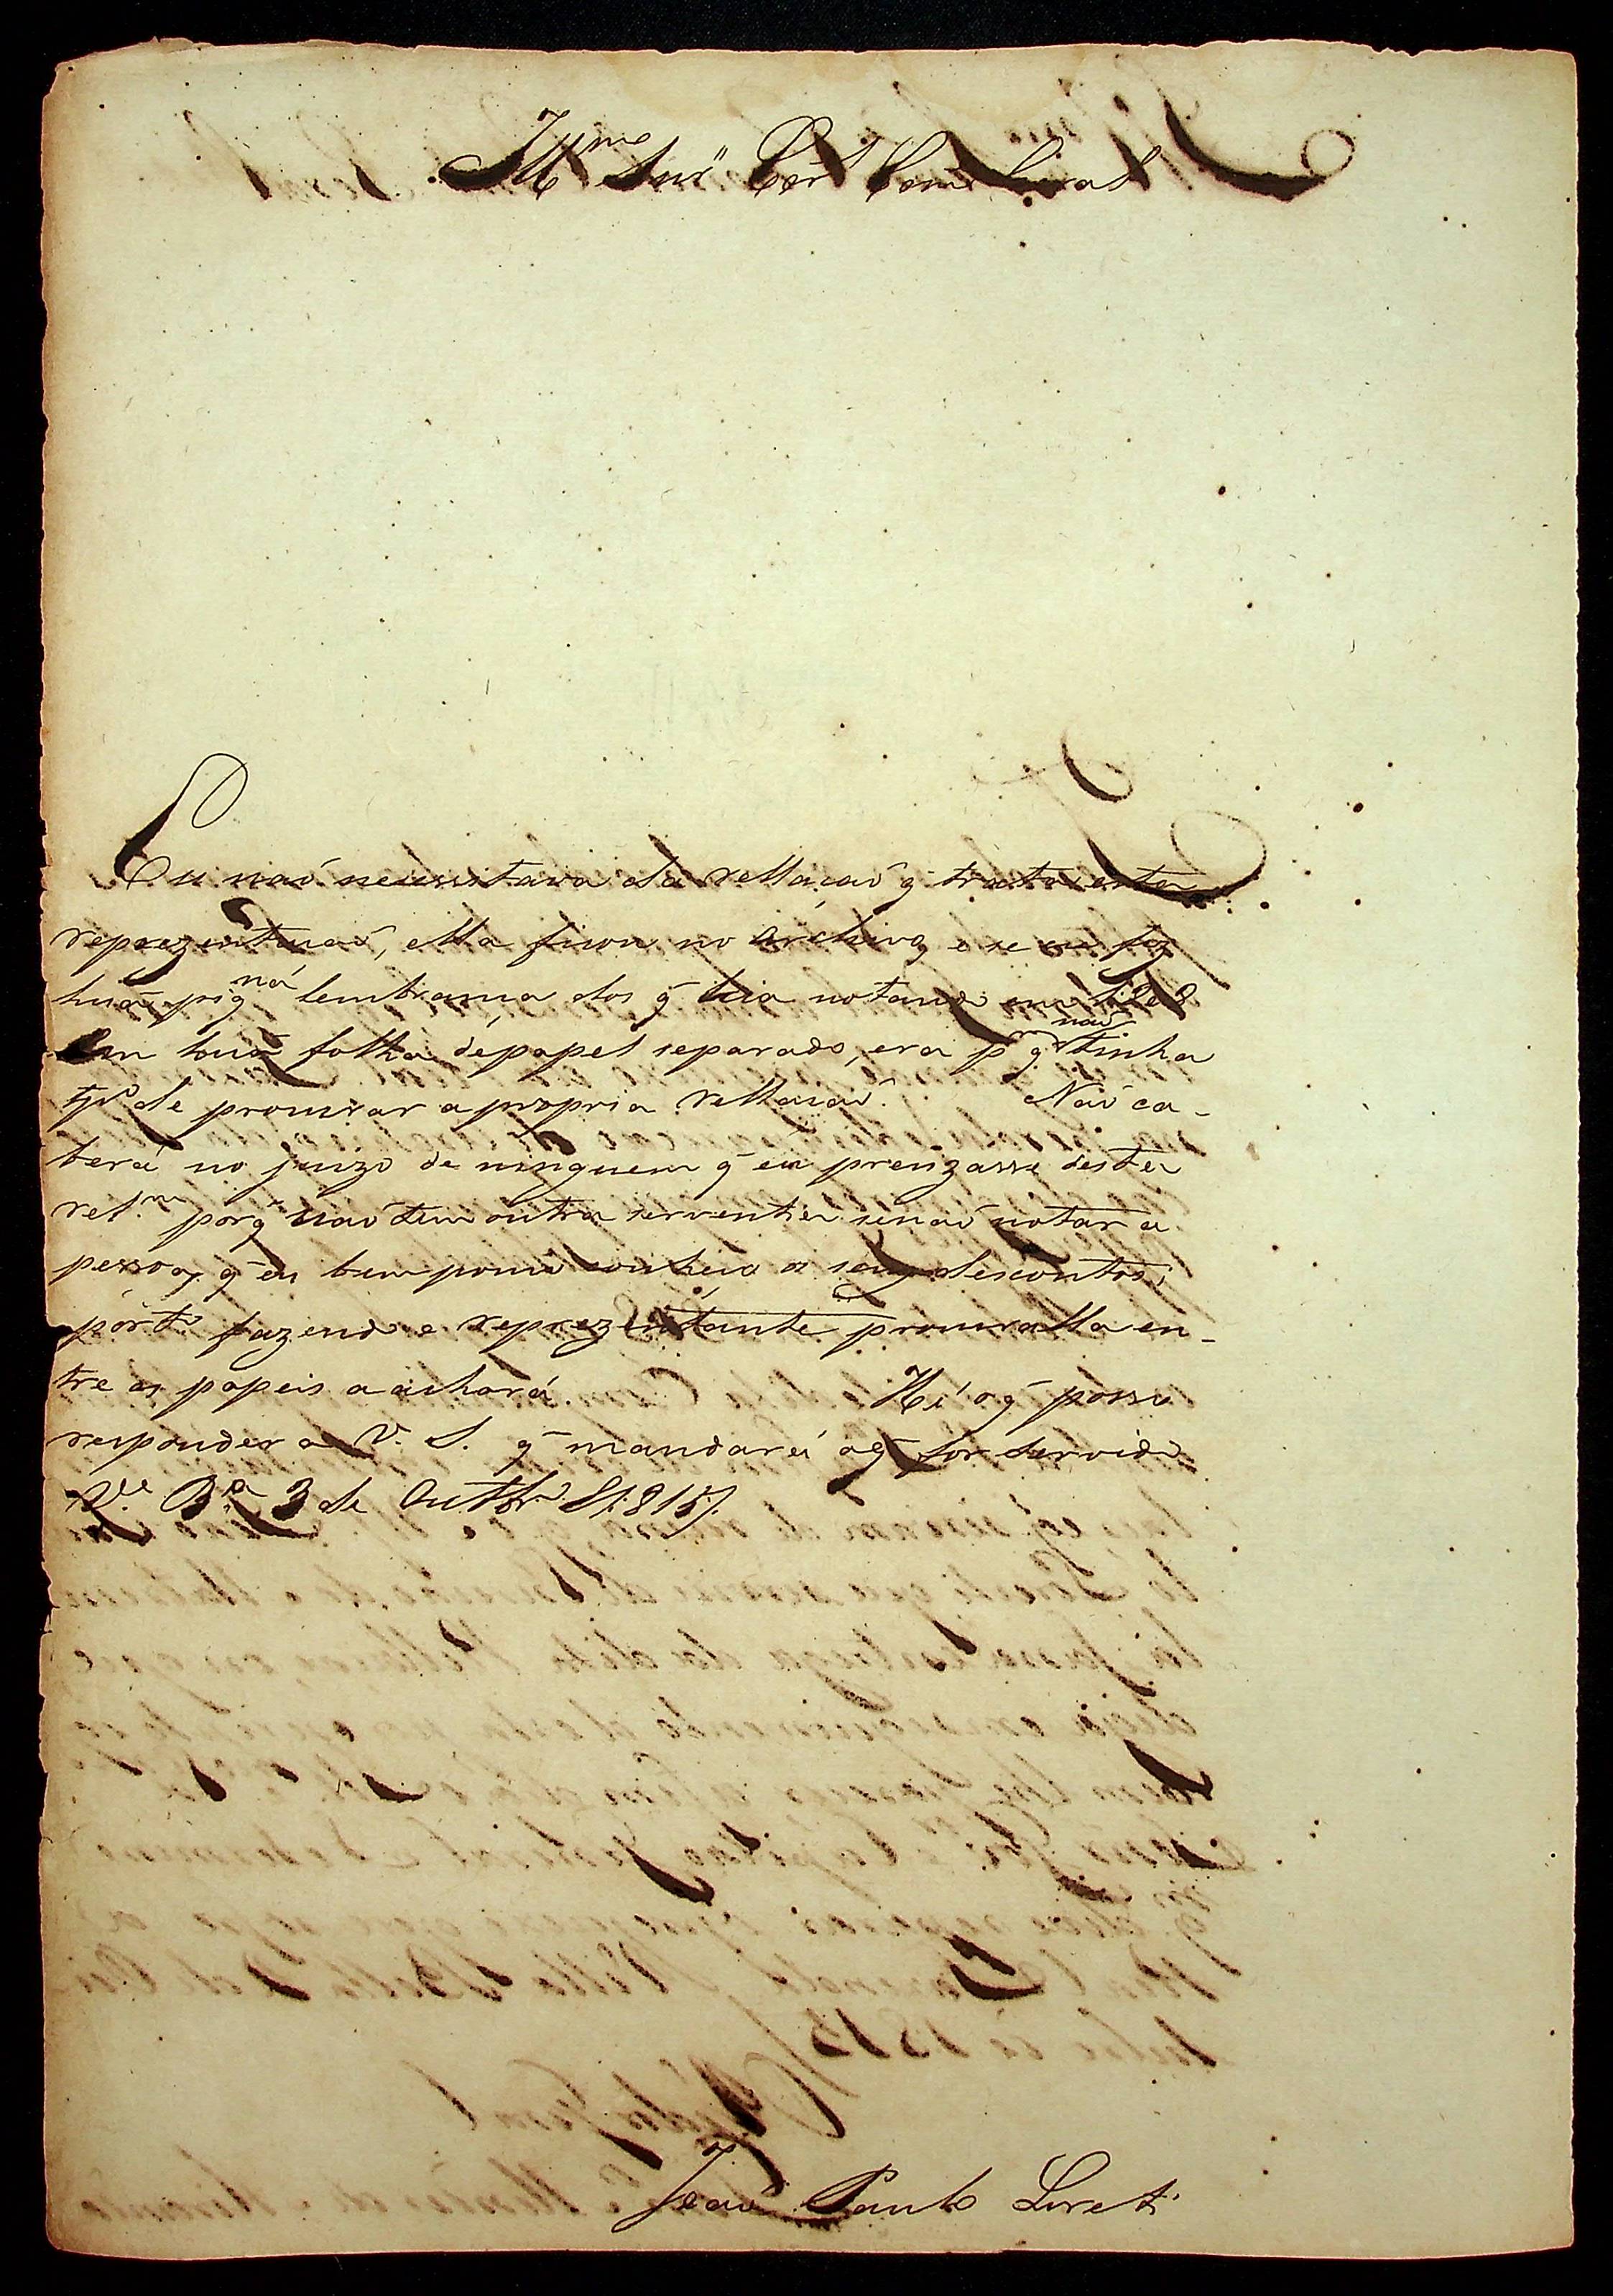 Illmo Snr Cel Com Geral
Eu naõ necessitava da rellaçaõ q̃ trata esta
reprezentaçaõ, ella ficou no archivo, e se se fez
huã lembrança dos q̃ hia notando
Em huã folha de papel separado, era pr q̃ naõ tinha
tpo de procurar a propria rellaçaõ. Naõ ca-
berá no juizo de ninguem q̃ eu precizasse desta
relm porq̃ naõ tem outra serventia senaõ notar a
pessoa, q̃ eu bem pouco conheço a seus descontos,
porto fazendo e reprezentante procuralla en-
tre os papeis a achará. Hé o q̃ posso
responder a V. S. q̃ mandará o q̃ for servido
Va Ba 3 de Outbro d 1815.
Joaõ Paulo Loreti